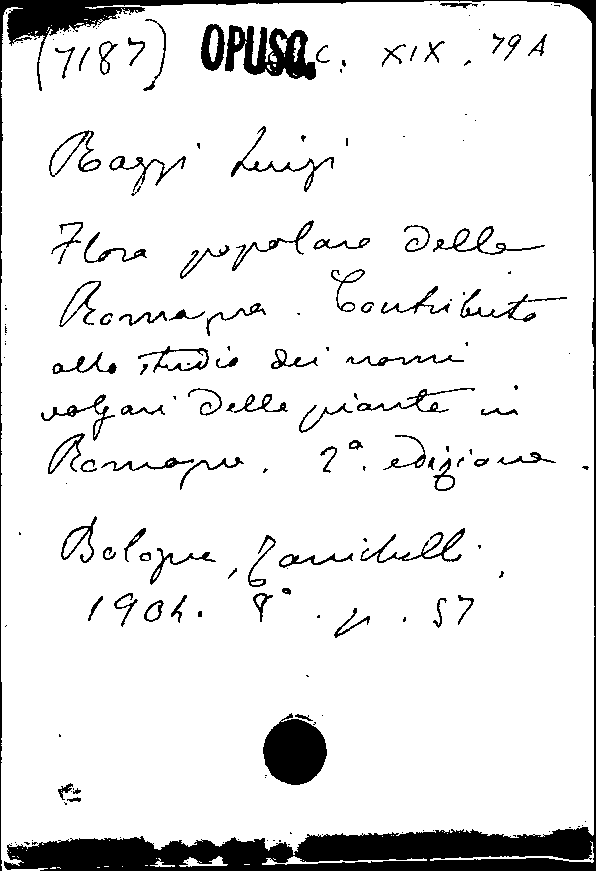 (7187) OPUSC. C. XIX. 79A
Raggi Luigi
Flora popolare della
Romagna. Contributo
allo studio dei nomi
volgari delle piante in
Romagna. 2ª. edizione.
Bologna, Zanichelli,
1904. 8°. p. 57